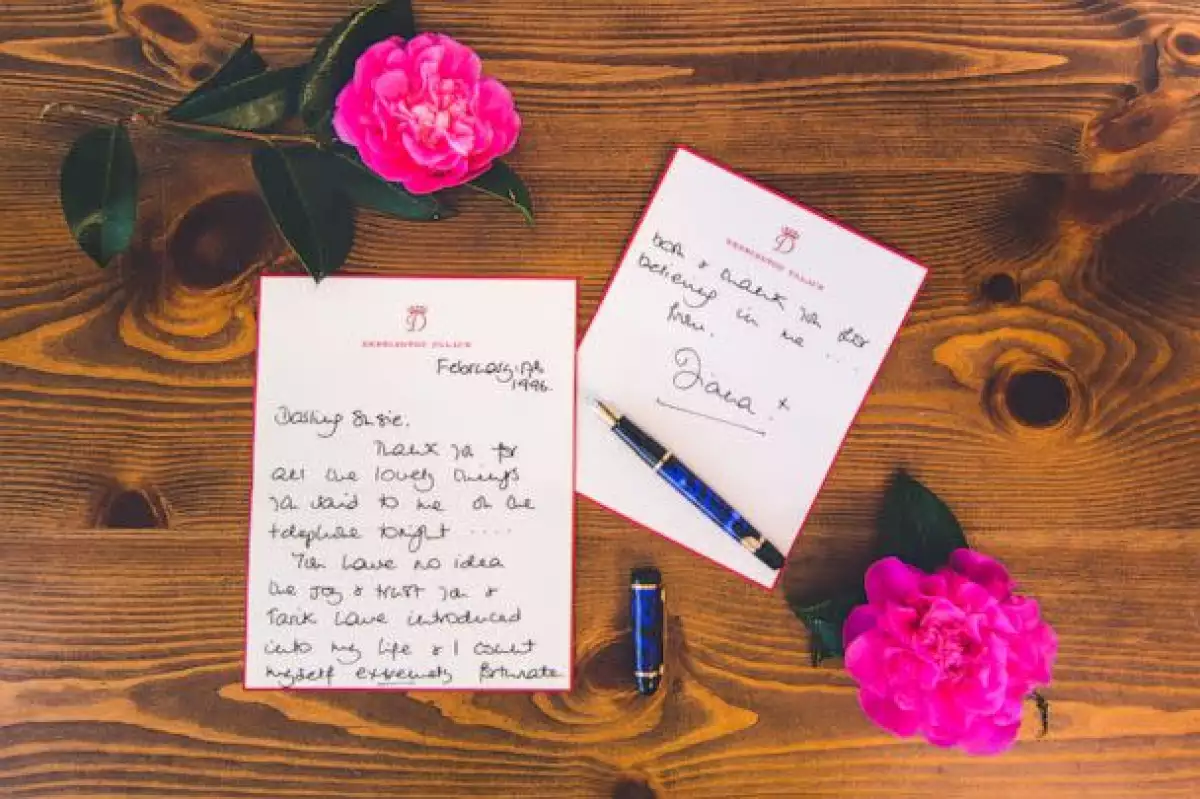 D
KENSINGTON PALACE
February 17th
1996.
Darling Susie.
Thank you for
all the lovely things
you said to me on the
telephone tonight ....
You have no idea
the joy & trust you &
Tarik have introduced
into my life & I count
myself extremely fortunate
D
KENSINGTON PALACE
both & thank you for
believing in me ...
from.
Diana x